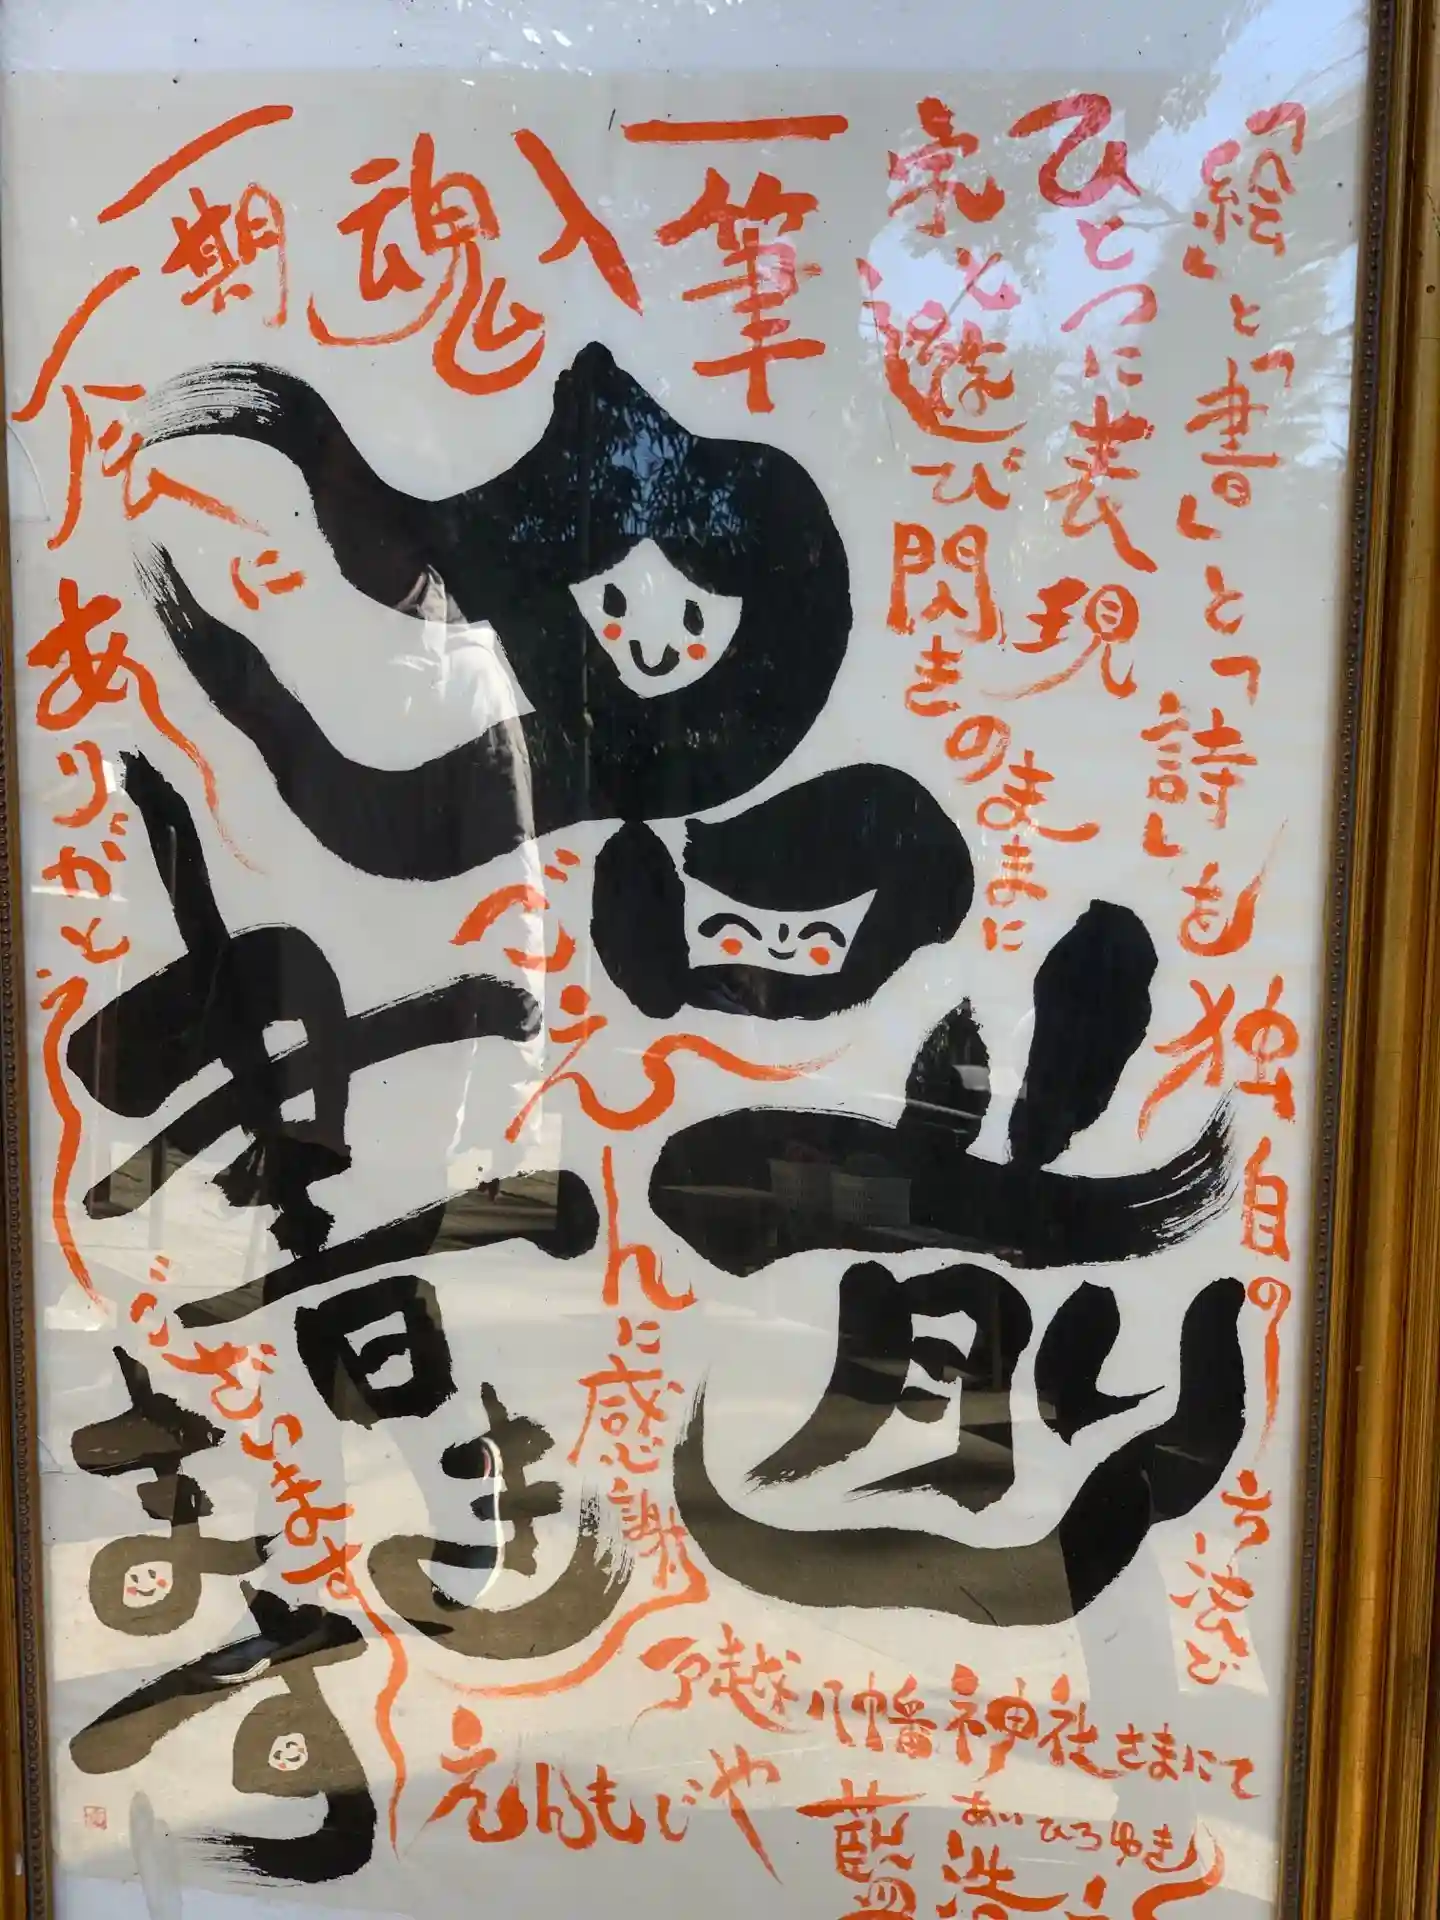 「絵」と「書」と「詩」を独自の
ひとつに表現
言遊び
閃きのままに
一筆
入魂
一期
一辰に
ありがとう
ございます
ごえんに感謝
心
前
書きます
八幡神社さまにて
えんもじや
あいひろゆき
藍